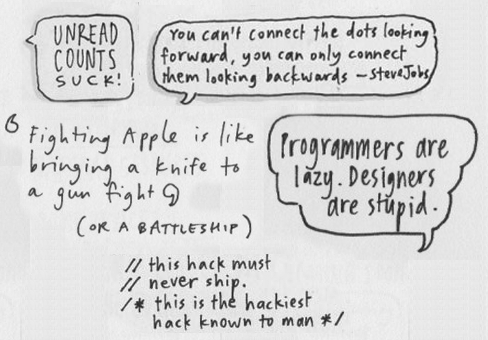 UNREAD
COUNTS
SUCK!
You can't connect the dots looking
forward, you can only connect
them looking backwards – Steve Jobs
Fighting Apple is like
bringing a knife to
a gun fight
(OR A BATTLESHIP)
Programmers are
lazy. Designers
are stupid.
// this hack must
// never ship.
/* this is the hackiest
hack known to man */